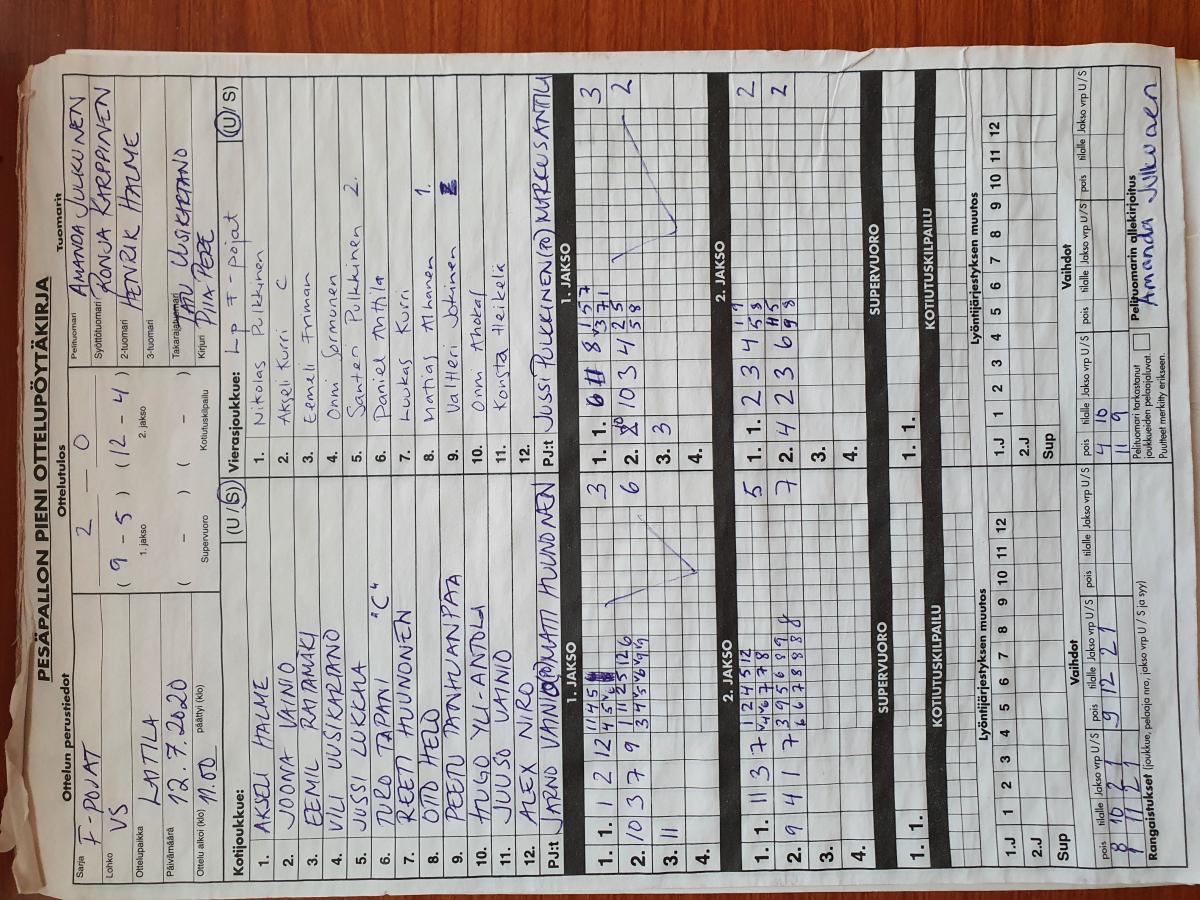 PESÄPALLON PIENI OTTELUPÖYTÄKIRJA
Ottelun perustiedot
Sarja F-POJAT
Lohko VS
Ottelupaikka LAITILA
Päivämäärä 12.7.2020
Ottelu alkoi (klo) 11.00 päättyi (klo)
Ottelutulos
2 — 0
( 9 - 5 ) ( 12 - 4 )
1. jakso 2. jakso
( - ) ( - )
Supervuoro Kotiutuskilpailu
Tuomarit
Pelituomari AMANDA JULKUNEN
Syöttötuomari RONJA KARPPINEN
2-tuomari HENRIK HALME
3-tuomari
Takarajatuomari TATU UUSIKARTANO
Kirjuri PIIA PERE
Kotijoukkue: (U / S)
1. AKSELI HALME
2. JOONA VAINIO
3. EEMIL RATAMÄKI
4. VILI UUSIKARTANO
5. JUSSI LUKKALA
6. TURO TAPANI "C"
7. REETI HUUNONEN
8. OTTO HELO
9. PEETU PAINHUANPAA
10. HUGO YLI-ANTOLA
11. JUUSO VAINIO
12. ALEX NIRO
PJ:t JARNO VAINIO MATTI HUUNONEN
Vierasjoukkue: Lp F-pojat (U / S)
1. Nikolas Pulkkinen
2. Akseli Kurri C
3. Eemeli Friman
4. Onni Sormunen
5. Santeri Pulkkinen 2.
6. Daniel Anttila
7. Luukas Kurri
8. Matias Alhanen 1.
9. Valtteri Jokinen
10. Onni Ahokas
11. Konsta Heikelä
12.
PJ:t JUSSI PULKKINEN (PJ) MARKUS ANTTILA
1. JAKSO
1. 1. 1 2 12 3
2. 10 3 7 9 6
3. 11
4.
2. JAKSO
1. 1. 11 3 7 5
2. 9 4 1 7 7
3.
4.
SUPERVUORO
1. 1.
KOTIUTUSKILPAILU
1. JAKSO
1. 1. 6 8 3
2. 10 3 4 2
3. 3
4.
2. JAKSO
1. 1. 2 3 4 2
2. 4 2 3 6 2
3.
4.
SUPERVUORO
1. 1.
KOTIUTUSKILPAILU
Lyöntijärjestyksen muutos
1.J 1 2 3 4 5 6 7 8 9 10 11 12
2.J
Sup
Vaihdot
pois tilalle Jakso vrp U / S pois tilalle Jakso vrp U / S pois tilalle Jakso vrp U / S
8 10 2 1 9 12 2 1
1 11 2 1
Rangaistukset (joukkue, pelaaja nro, jakso vrp U / S ja syy)
Lyöntijärjestyksen muutos
1.J 1 2 3 4 5 6 7 8 9 10 11 12
2.J
Sup
Vaihdot
pois tilalle Jakso vrp U / S pois tilalle Jakso vrp U / S pois tilalle Jakso vrp U / S
4 10
11 9
Pelituomari tarkastanut
joukkueiden pelaajaluvat.
Puutteet merkitty erikseen.
Pelituomarin allekirjoitus
Amanda Julkunen